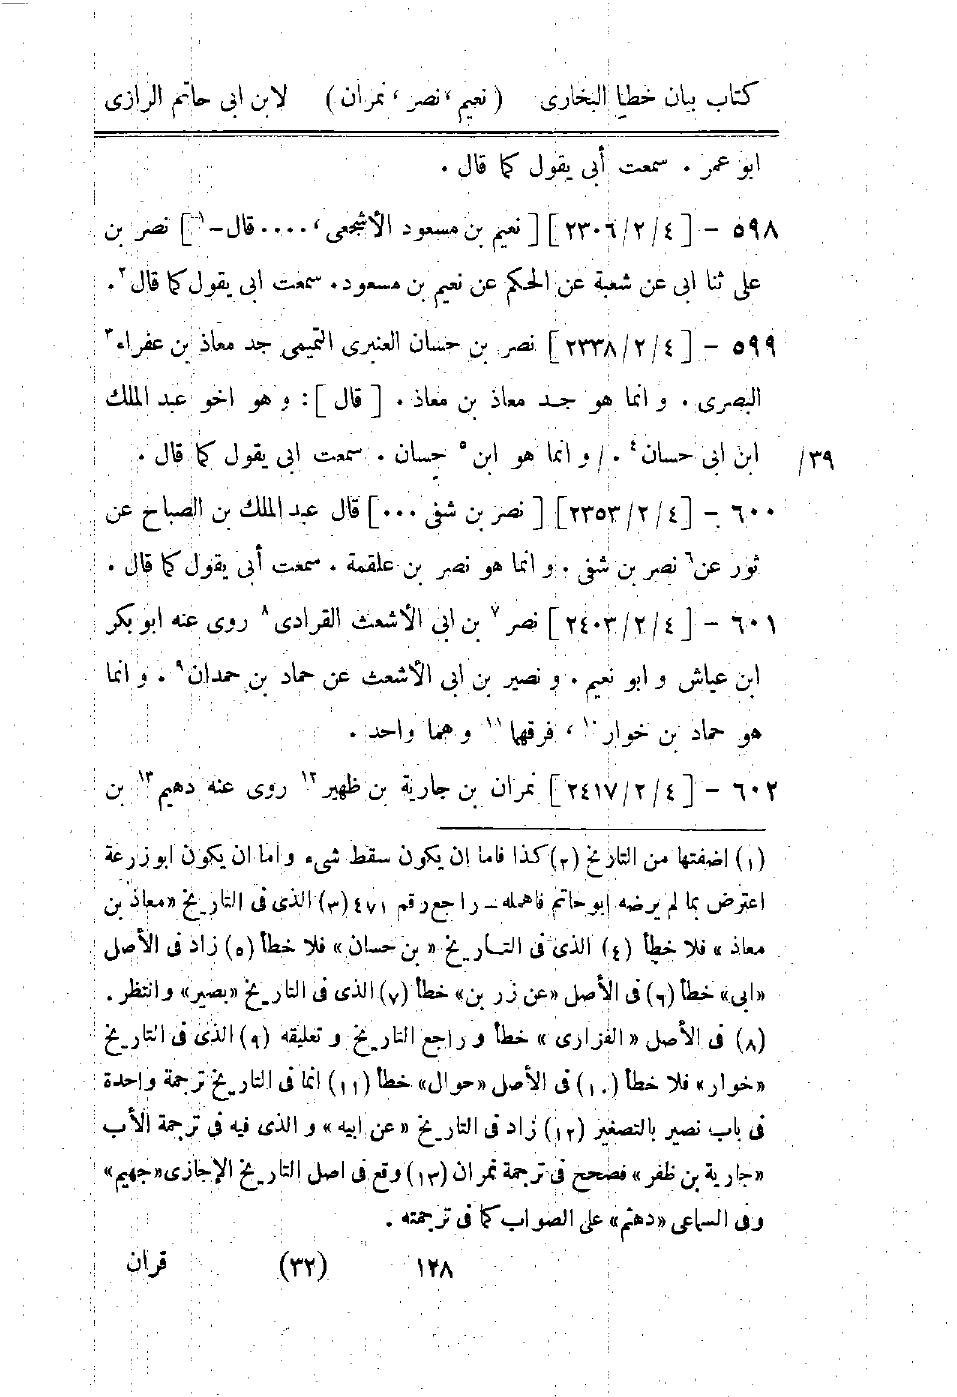 كتاب بيان خطإ البخارى ( نعيم ، نصر ، نمران ) لابن ابى حاتم الرازى
ابو عمر . سمعت أبى يقول كما قال .
٥٩٨ - [ ٤ /٢ /٢٣٠٦ ] [ نعيم بن مسعود الأشجعى ، .... قال - ١ ] نصر بن
على ثنا ابى عن شعبة عن الحكم عن نعيم بن مسعود . سمعت ابى يقول كما قال ٢ .
٥٩٩ - [ ٤ /٢ /٢٣٣٨ ] نصر بن حسان العنبرى التميمى جد معاذ بن عفراء ٣
البصرى . و انما هو جد معاذ بن معاذ . [ قال ] : و هو اخو عبد الملك
٣٩/ ابن ابى حسان ٤ . / و انما هو ابن ٥ حسان . سمعت ابى يقول كما قال .
٦٠٠ - [ ٤ /٢ /٢٣٥٣ ] [ نصر بن شفى ... ] قال عبد الملك بن الصباح عن
ثور عن ٦ نصر بن شفى . و انما هو نصر بن علقمة . سمعت أبى يقول كما قال .
٦٠١ - [ ٤ /٢ /٢٤٠٣ ] نصر ٧ بن ابى الأشعث القرادى ٨ روى عنه ابو بكر
ابن عياش و ابو نعيم . و نصير بن ابى الأشعث عن حماد بن حمدان ٩ . و انما
هو حماد بن خوار ١٠ ، فرقهما ١١ و هما واحد .
٦٠٢ - [ ٤ /٢ /٢٤١٧ ] نمران بن جارية بن ظهير ١٢ روى عنه دهيم ١٣ بن
(١) اضفتها من التاريخ (٢) كذا فاما ان يكون سقط شىء و اما ان يكون ابو زرعة
اعترض بما لم يرضه ابو حاتم فاهمله - راجع رقم ٤٧١ (٣) الذى فى التاريخ «معاذ بن
معاذ » فلا خطأ (٤) الذى فى التاريخ « بن حسان » فلا خطأ (٥) زاد فى الأصل
«ابى» خطأ (٦) فى الأصل «عن زر بن» خطأ (٧) الذى فى التاريخ «بصير» وانتظر .
(٨) فى الأصل « الفزارى » خطأ و راجع التاريخ و تعليقه (٩) الذى فى التاريخ
«خوار» فلا خطأ (١٠) فى الأصل «حوال» خطأ (١١) انما فى التاريخ ترجمة واحدة
فى باب نصير بالتصغير (١٢) زاد فى التاريخ «عن ابيه» و الذى فيه فى ترجمة الأب
«جارية بن ظفر» فصحح فى ترجمة نمران (١٣) وقع فى اصل التاريخ الإجازى «جهيم»
وفى السماعى «دهثم» على الصواب كما فى ترجمته .
١٢٨ (٣٢) قران